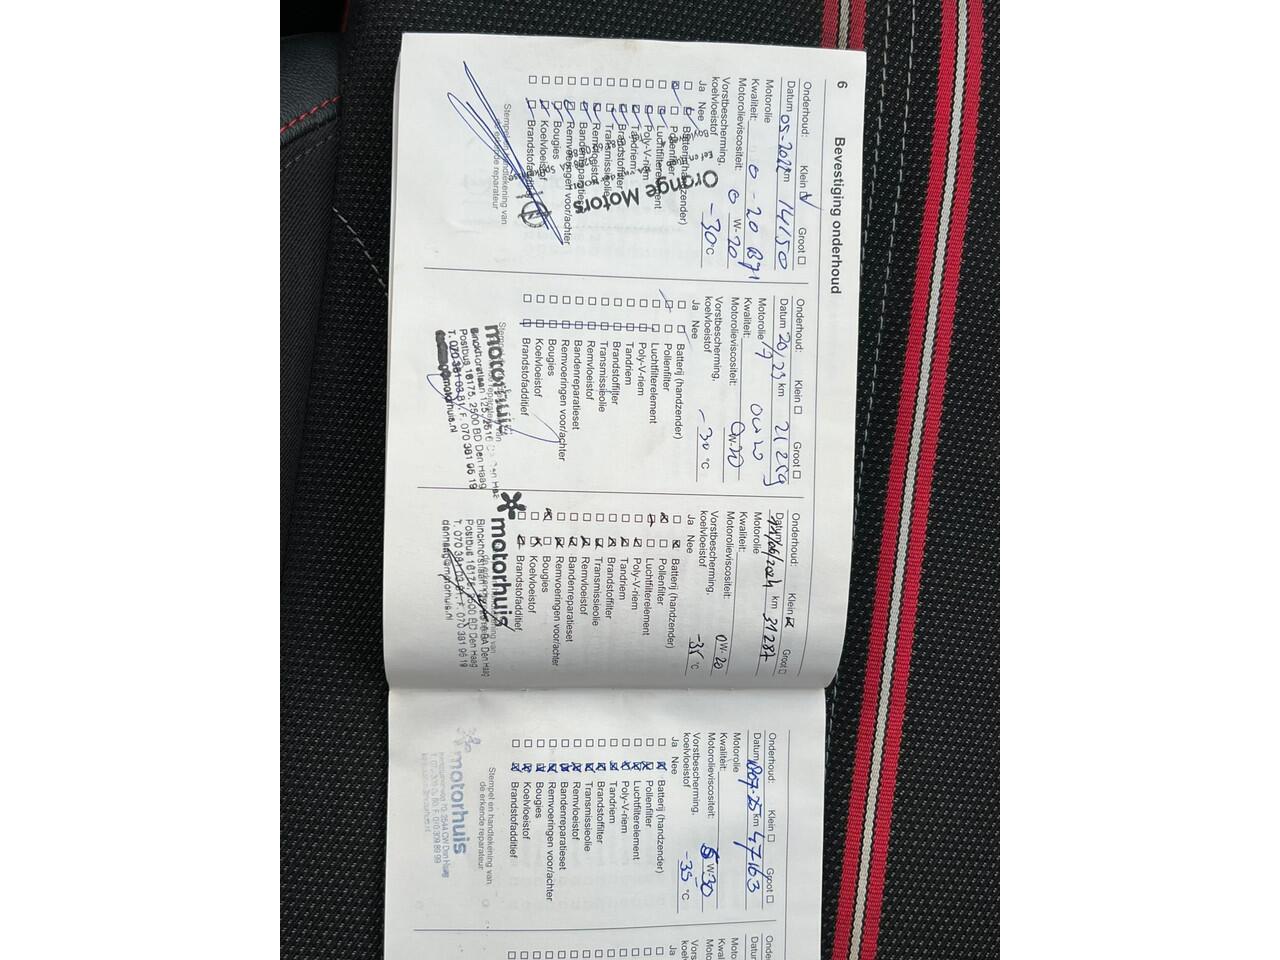 6 Bevestiging onderhoud
Onderhoud: Klein Groot
Datum 05-2022 km 14150
Motorolie
Kwaliteit: 0-20 B71
Motorolieviscositeit: 0 W-20
Vorstbescherming,
koelvloeistof -30 °C
Ja Nee
Batterij (handzender)
Pollenfilter
Luchtfilterelement
Poly-V-riem
Tandriem
Brandstoffilter
Transmissieolie
Remvloeistof
Bandenreparatieset
Remvoeringen voor/achter
Bougies
Koelvloeistof
Brandstofadditief
Orange Motors
Stempel en handtekening van
de erkende reparateur
Onderhoud: Klein Groot
Datum km 21259
Motorolie
Kwaliteit:
Motorolieviscositeit: 0W-20
Vorstbescherming,
koelvloeistof -30 °C
Ja Nee
Batterij (handzender)
Pollenfilter
Luchtfilterelement
Poly-V-riem
Tandriem
Brandstoffilter
Transmissieolie
Remvloeistof
Bandenreparatieset
Remvoeringen voor/achter
Bougies
Koelvloeistof
Brandstofadditief
motorhuis
Binckhorstlaan
Postbus 16175, 2500 BD Den Haag
T. 070 381 F. 070 381 96 19
Onderhoud: Klein Groot
Datum km 31287
Motorolie
Kwaliteit:
Motorolieviscositeit: 0W-20
Vorstbescherming,
koelvloeistof -35 °C
Ja Nee
Batterij (handzender)
Pollenfilter
Luchtfilterelement
Poly-V-riem
Tandriem
Brandstoffilter
Transmissieolie
Remvloeistof
Bandenreparatieset
Remvoeringen voor/achter
Bougies
Koelvloeistof
Brandstofadditief
motorhuis
Binckhorstlaan Den Haag
Postbus 16175, 2500 BD Den Haag
T. 070 381 F. 070 381 96 19
Onderhoud: Klein Groot
Datum km 47163
Motorolie
Kwaliteit:
Motorolieviscositeit: W-30
Vorstbescherming,
koelvloeistof -35 °C
Ja Nee
Batterij (handzender)
Pollenfilter
Luchtfilterelement
Poly-V-riem
Tandriem
Brandstoffilter
Transmissieolie
Remvloeistof
Bandenreparatieset
Remvoeringen voor/achter
Bougies
Koelvloeistof
Brandstofadditief
Stempel en handtekening van
de erkende reparateur
motorhuis